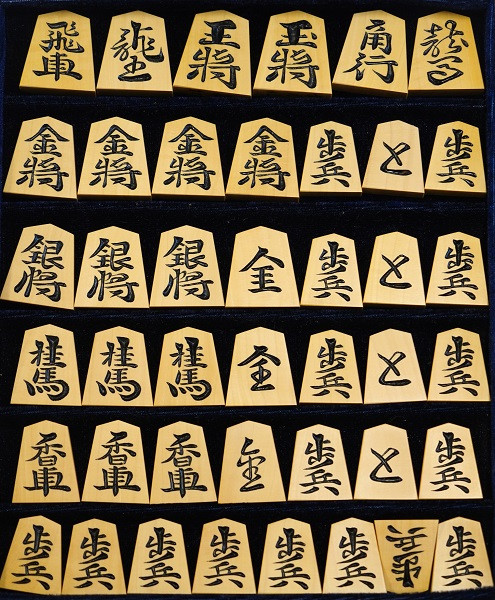 飛車 龍王 王将 玉将 角行 龍馬
金将 金将 金将 金将 歩兵 と 歩兵
銀将 銀将 銀将 全 歩兵 と 歩兵
桂馬 桂馬 桂馬 全 歩兵 と 歩兵
香車 香車 香車 歩兵 と 歩兵
歩兵 歩兵 歩兵 歩兵 歩兵 歩兵 歩兵 歩兵